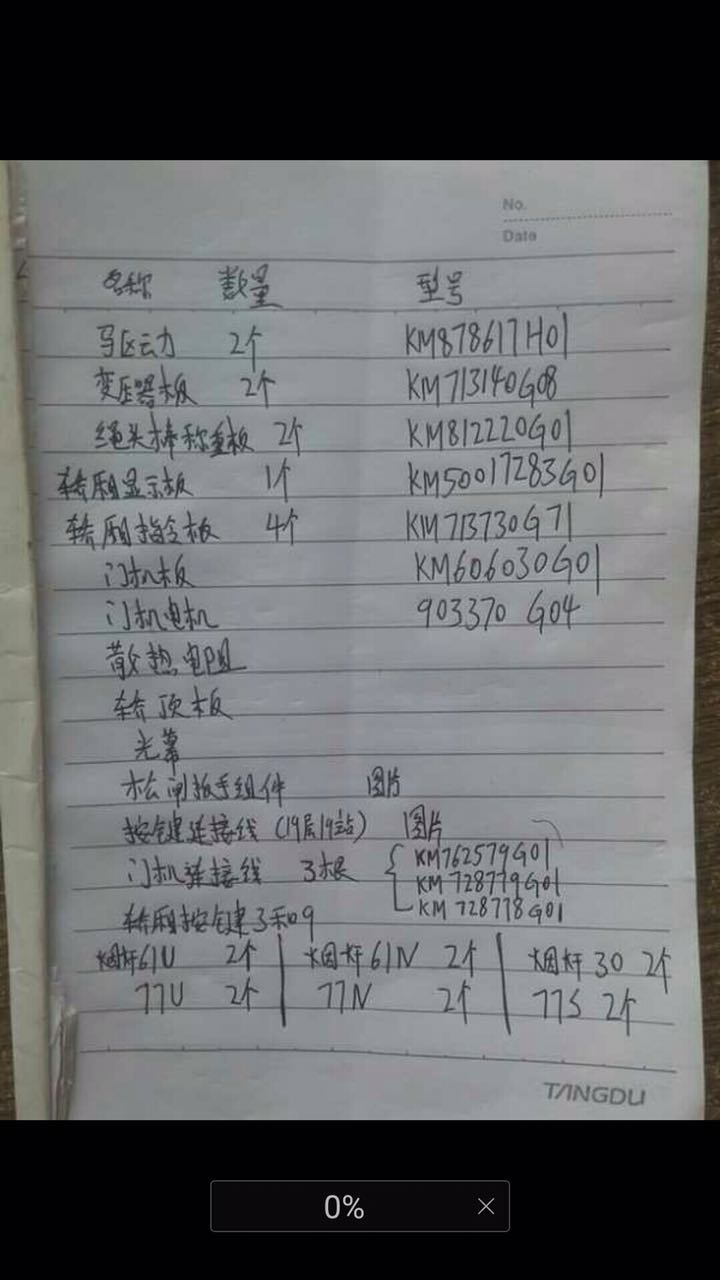 No.
Date
名称 数量 型号
马区动力 2个 KM878617H01
变压器板 2个 KM713140G08
绳头棒称重板 2个 KM812220G01
轿厢显示板 1个 KM50017283G01
轿厢指令板 4个 KM713730G71
门机板 KM606030G01
门机电机 903370 G04
散热电阻
轿顶板
光幕
松闸扳手组件 图片
按键连接线 (19层19站) 图片
门机连接线 3根 { KM762579G01
KM 728779G01
KM 728778G01
轿厢按键3和9
烟杆61U 2个 | 烟杆61N 2个 | 烟杆30 2个
77U 2个 | 77N 2个 | 77S 2个
TANGDU
0% ×